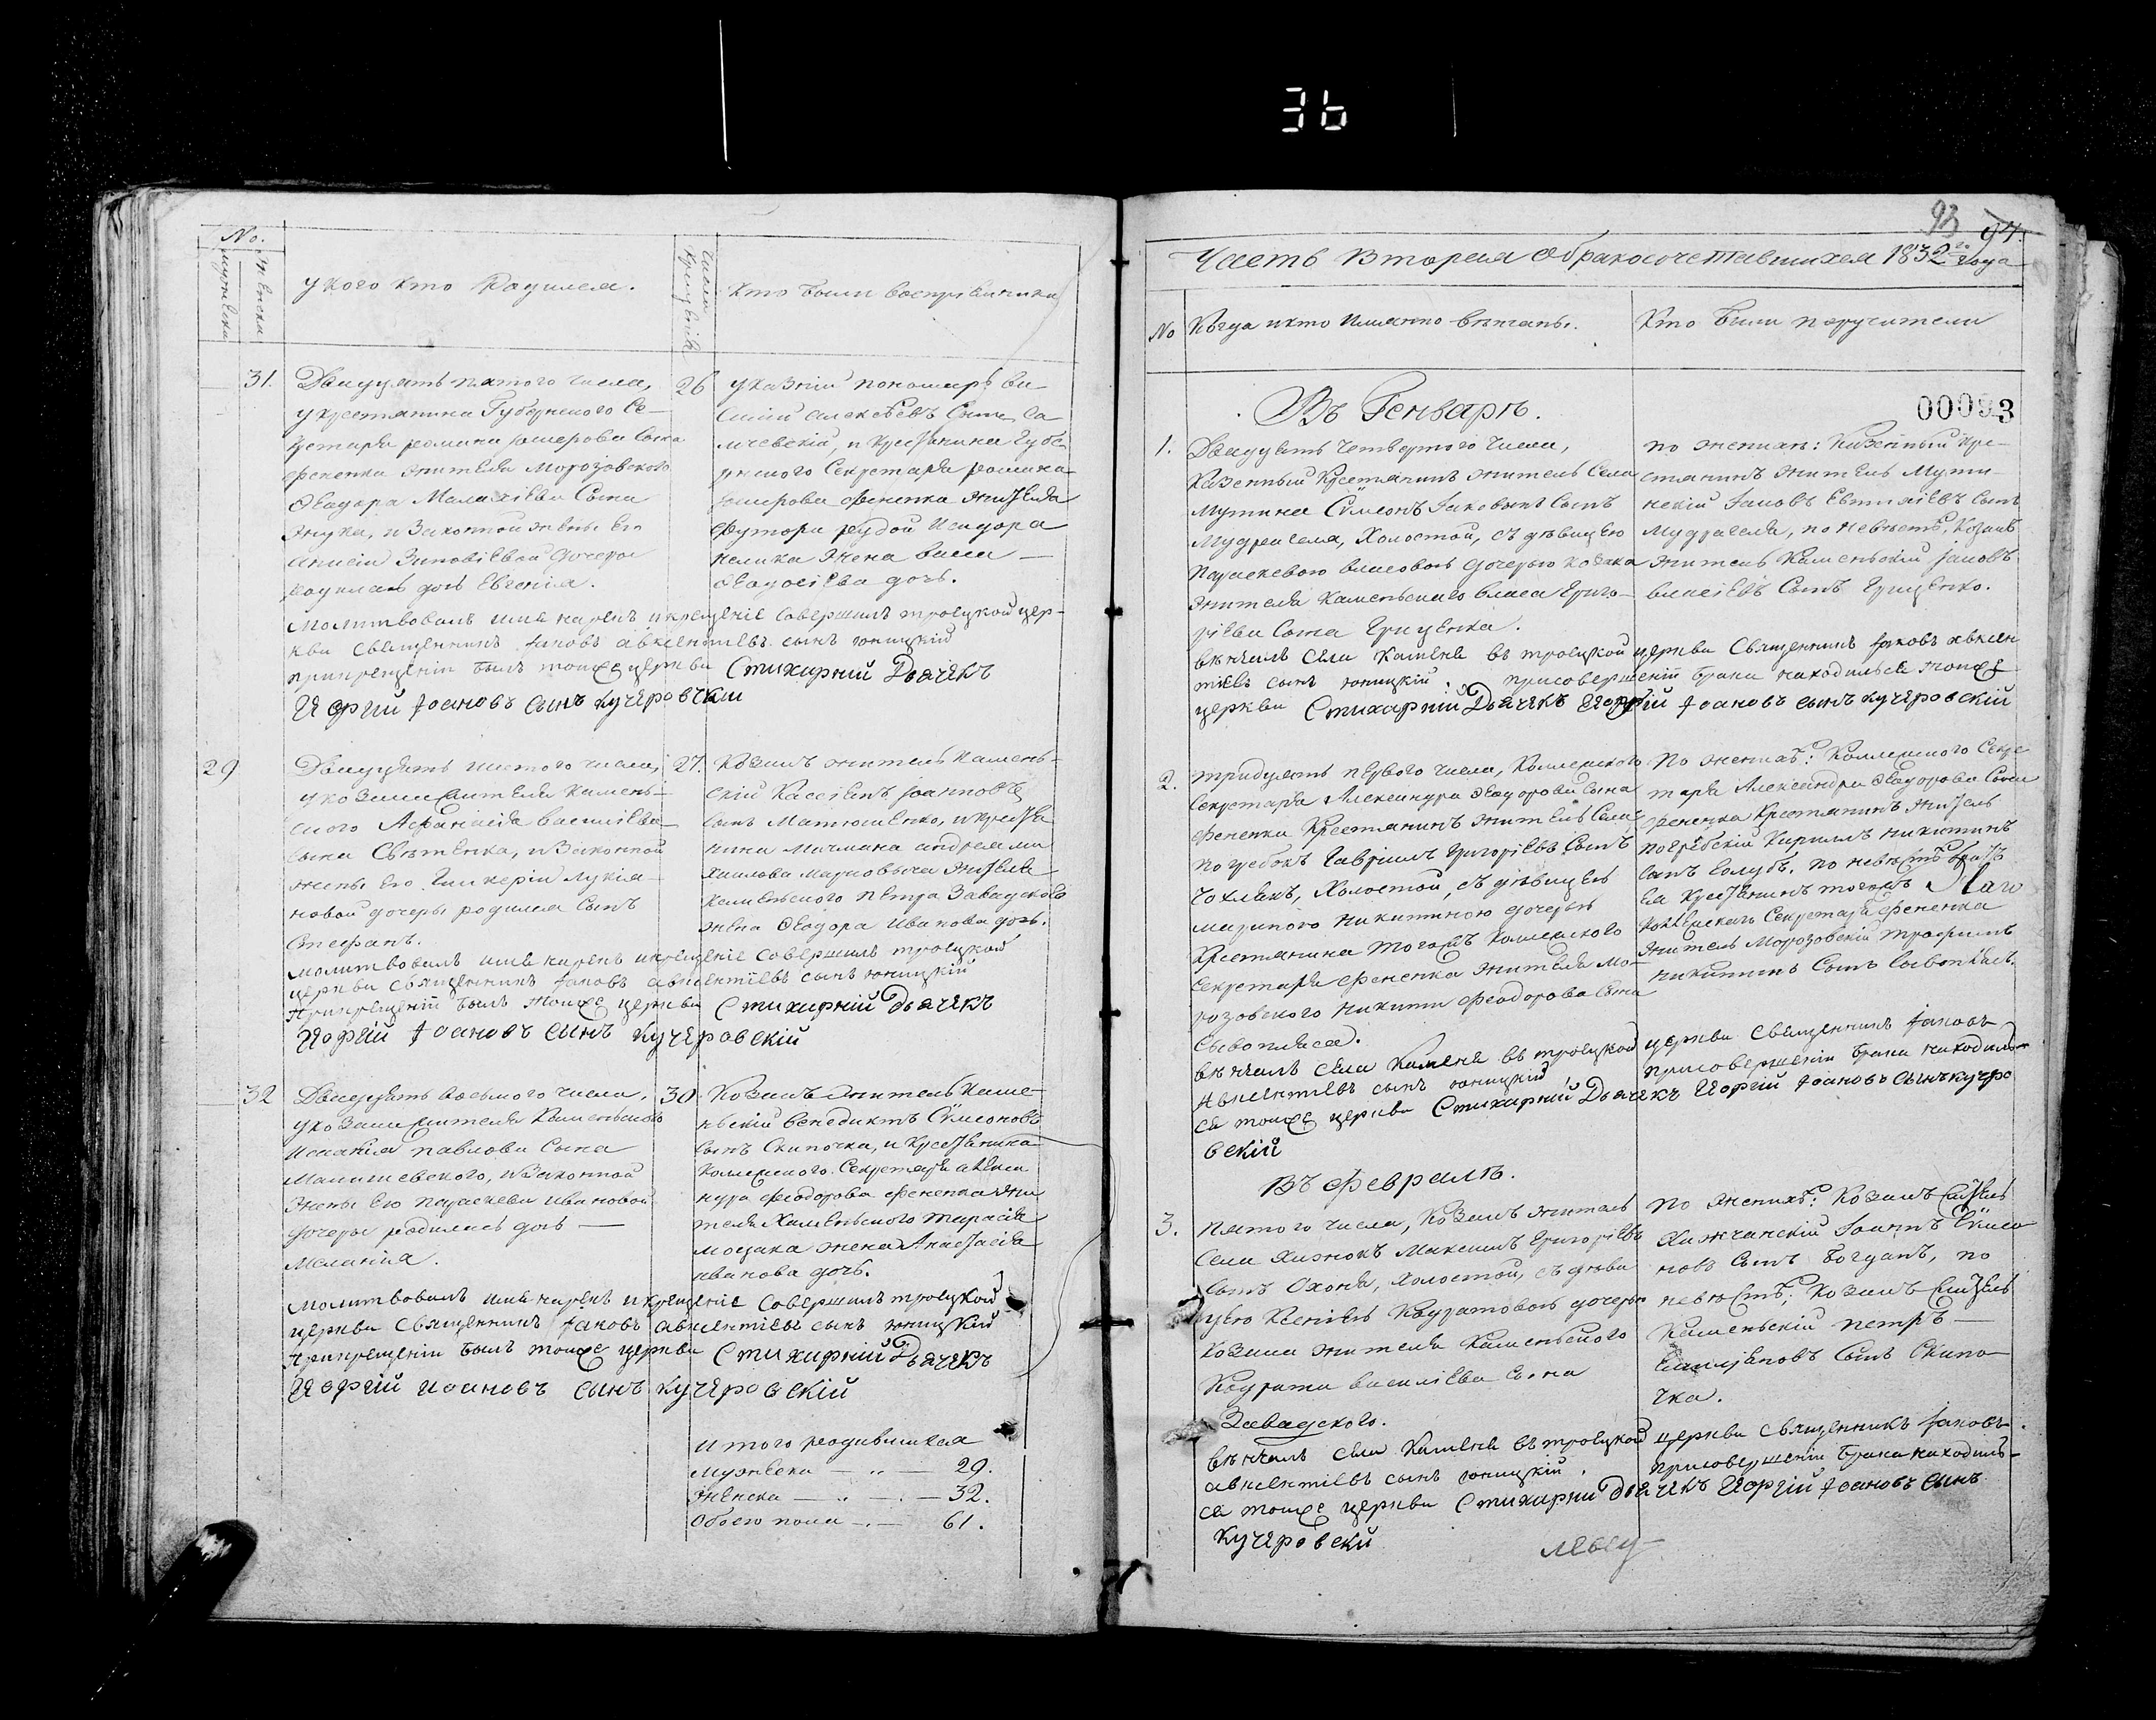 36
No.
мужески
женски
у кого кто Родился.
Число крещенія
кто были воспріемники
31.
Двадцять пятого числа,
у крестянина Губернского Се-
кретаря романа
Фененка жителя Морозовского
Феодора Малахіева Сына
Жука, и Законной жены Его
Анисіи Зиновіевой дочеры
родилась дочь Евгенія.
26
указній пономарь ва-
силій алексѣевъ Сынъ
и крестянина Губе
рнского Секретаря романа
Фененка жителя
Футора рудой Исидора
жена васса
Феодосіева дочь.
молитвовалъ имя нарекъ и крещеніе совершилъ троецкой цер-
кви священникъ Іаковъ авксентіевъ сынъ юницкій
прикрещеніи былъ тоиже церкви Стихарній Дьячекъ
Георгій Іоановъ сынъ кучеровскій
29
Двадцять шестого числа,
у козака жителя камень-
ского Афанасія василіева
сына Свѣтенка, и Законной
жены его Гликеріи лукія-
новой дочеры родился Сынъ
Стефанъ.
27.
Козакъ житель камень-
скій Кассіянъ Іоанновъ
сынъ Матюшенко, и крестя
нина Мичмана андрея ми
хаилова Марковича жителя
каменьского петра Завадского
жена Феодора Иванова дочь.
молитвовалъ имя нарекъ икрещеніе совершилъ троецкой
церкви священникъ Іаковъ авксентіевъ сынъ юницкій
Прикрещеніи былъ тоиже церкви Стихарній Дьячекъ
Георгій Іоановъ сынъ кучеровскій
32
Двадцять восьмого числа,
у козака жителя Каменьского
павлова Сына
Манишевского, и Законной
жены Его параскевы ивановой
дочеры родилась дочь —
Меланія.
30.
Козакъ житель Каме-
нъскій венедиктъ Сѵмеоновъ
сынъ Скипочка, и крестянина
Коллежского Секретаря алекса
ндра Феодорова Фененка жи
теля Каменьского тарасія
жена Анастасія
иванова дочь.
молитвовалъ имя нарекъ икрещеніе Совершилъ троецкой
церкви Священникъ Іаковъ авксентіевъ сынъ юницкий
прикрещеніи былъ тоиже церкви Стихарній Дьячекъ
Георгій иоановъ сынъ кучеровскій
итого родившихся
Мужеска — „ — 29.
Женска — „ — 32.
Обоего пола — . — 61.
93 94.
Часть вторая о бракосочетавшихся 1832го Года
No
Когда и кто имянно вѣнчаны.
Кто были поручители
Въ Генваръ.
00093
1.
Двадцять четвертого числа,
Казенный Крестянинъ житель Села
Мутина Сѵмеонъ Іаковлевъ Сынъ
Мудрагеля, Холостой, съ дѣвицею
параскевою власовою дочерью козака
жителя Каменьского власа Григо-
ріева Сына Гриценка.
по женихъ: Казенный кре-
стянинъ житель Мути-
нскій Іаковъ Евтихіевъ Сынъ
Мудрагеля, по невѣстѣ, козакъ
житель Каменьскій Іаковъ
власіевъ Сынъ Гриценко.
вѣнчалъ села Каменя въ троецкой церкви Священникъ Іаковъ авксен
тіевъ сынъ юницкій. присовершеніи брака находился тоиже
церкви Стихарній Дьячекъ Георгій Іоановъ сынъ кучеровскій
2.
тридцять первого числа, Коллежского
Секретаря Александра Феодорова Сына
Фененка Крестянинъ житель Села
погребокъ Гавріилъ Григоріевъ Сынъ
Чохлакъ, Холостой, съ дѣвицею
мариною никитиною дочерью
крестянина тогожъ Коллежского
Секретаря Фененка жителя Мо-
розовского Никити Феодорова Сына
Сывопляса.
По женихѣ: Коллежского Секре
таря Александра Феодорова Сына
Фененка Крестянинъ житель
погребскій Кириллъ никитинъ
сынъ Голубъ. по невѣстѣ братъ
ея крестянинъ тогожъ
Коллежскаго Секретаря Фененка
житель Морозовскій трофимъ
никитинъ Сынъ Сывоплясъ.
вѣнчалъ села Каменя въ троецкой церкви Священникъ Іаковъ
Авксентіевъ сынъ юницкій присовершеніи брака находил-
ся тоиже церкви Стихарній Дьячекъ Георгій Іоановъ сынъ кучеро
вскій
Въ Февралѣ.
3.
Пятого числа, Козакъ житель
Села Хижокъ Максимъ Григоріевъ
сынъ Охоня, Холостой, съ дѣви
цею Ксеніею Кодратовою дочерью
козака жителя Каменьского
Кодрата василіева Сына
Завадского.
По женихѣ: Козакъ житель
Хижчанскій Іоаннъ Сѵмео
новъ Сынъ Богданъ, по
невѣстѣ; Козакъ житель
Каменьскій петръ —
Сынъ Скипо-
чка.
вѣнчалъ села Каменя въ троецкой церкви священникъ Іаковъ
авксентіевъ сынъ юницкій. присовершеніи брака находил-
ся тоиже церкви Стихарни дьячекъ Георгій Іоановъ сынъ
кучеровски